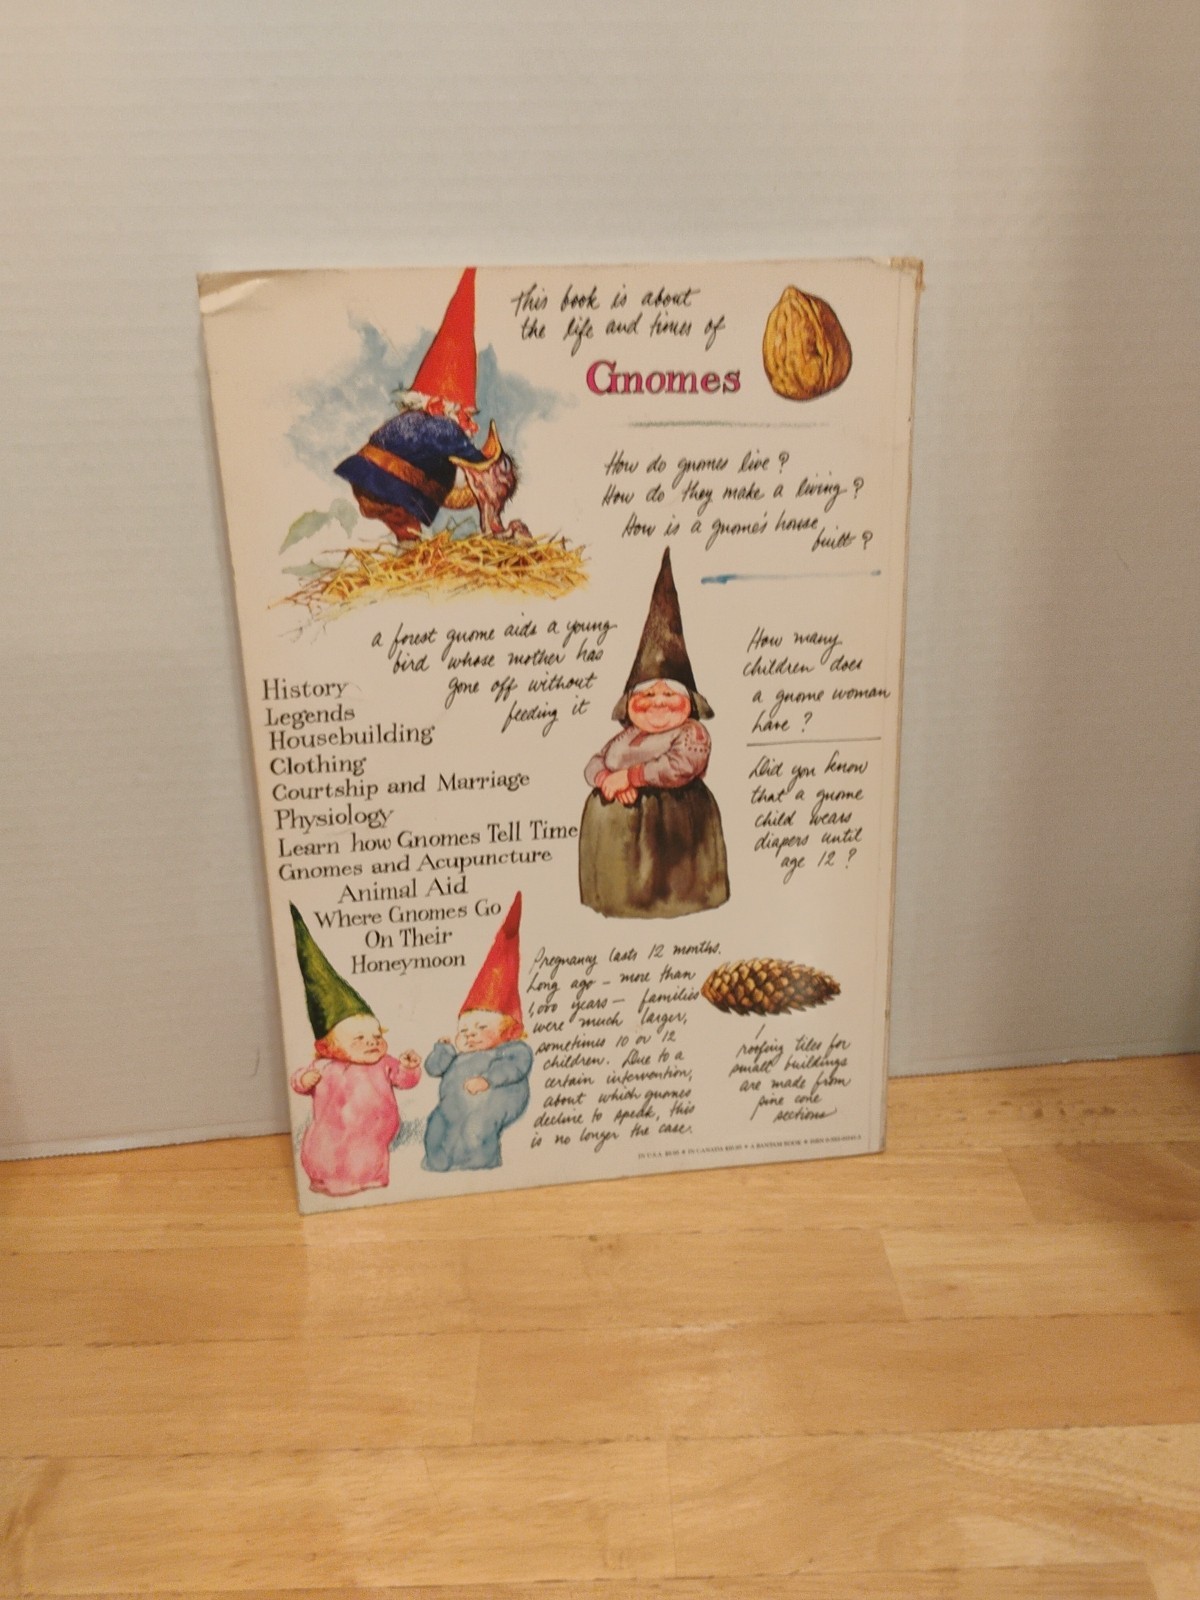 This book is about
the life and times of
Gnomes
How do gnomes live?
How do they make a living?
How is a gnome's house
built?
a forest gnome aids a young
bird whose mother has
gone off without
feeding it
History
Legends
Housebuilding
Clothing
Courtship and Marriage
Physiology
Learn how Gnomes Tell Time
Gnomes and Acupuncture
Animal Aid
Where Gnomes Go
On Their
Honeymoon
How many
children does
a gnome woman
have?
Did you know
that a gnome
child wears
diapers until
age 12?
Pregnancy lasts 12 months.
Long ago – more than
1,000 years – families
were much larger,
sometimes 10 or 12
children. Due to a
certain intervention,
about which gnomes
decline to speak, this
is no longer the case.
roofing tiles for
small buildings
are made from
pine cone
sections
IN U.S.A. • IN CANADA • A BANTAM BOOK •